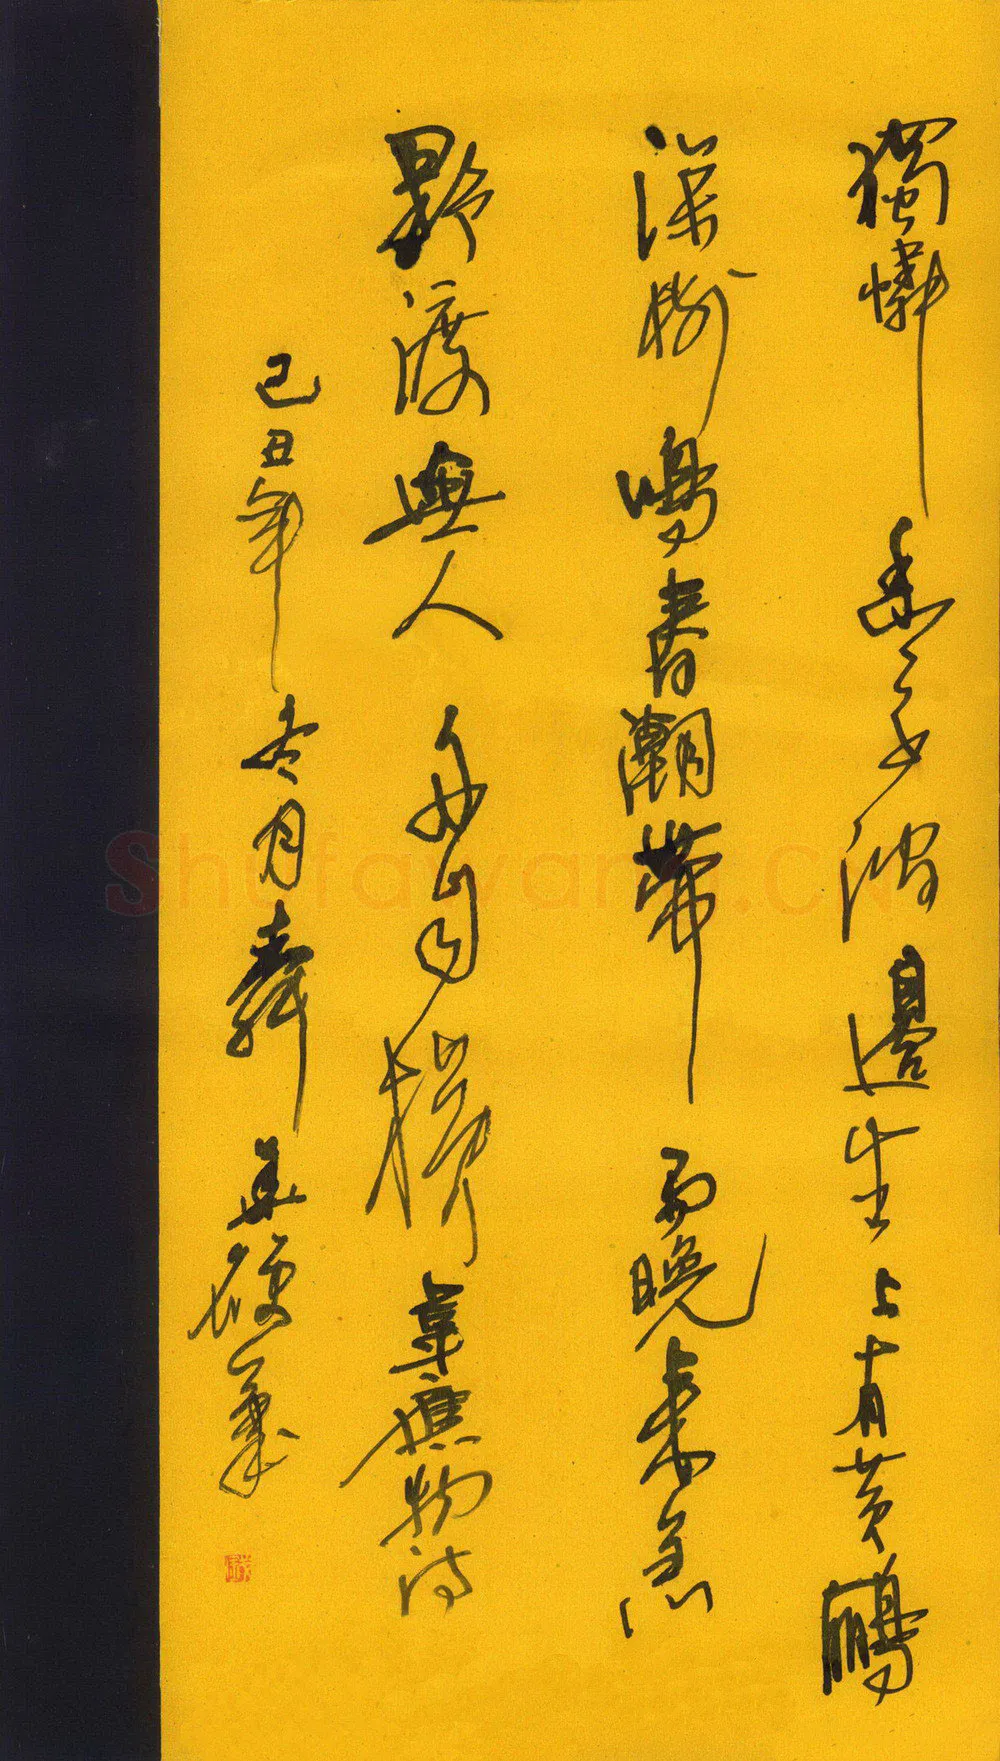 獨憐幽草澗邊生上有黃鸝
深樹鳴春潮帶雨晚來急
野渡無人舟自橫韋應物詩
己丑年冬月硬筆
Shufawang.CN